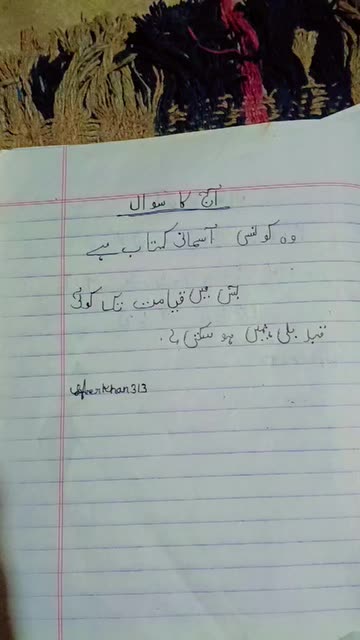 آج کا سوال
وہ کونسی آسمانی کتاب ہے
جس میں قیامت تک کوئی
تبدیلی نہیں ہو سکتی ہے.
khan313